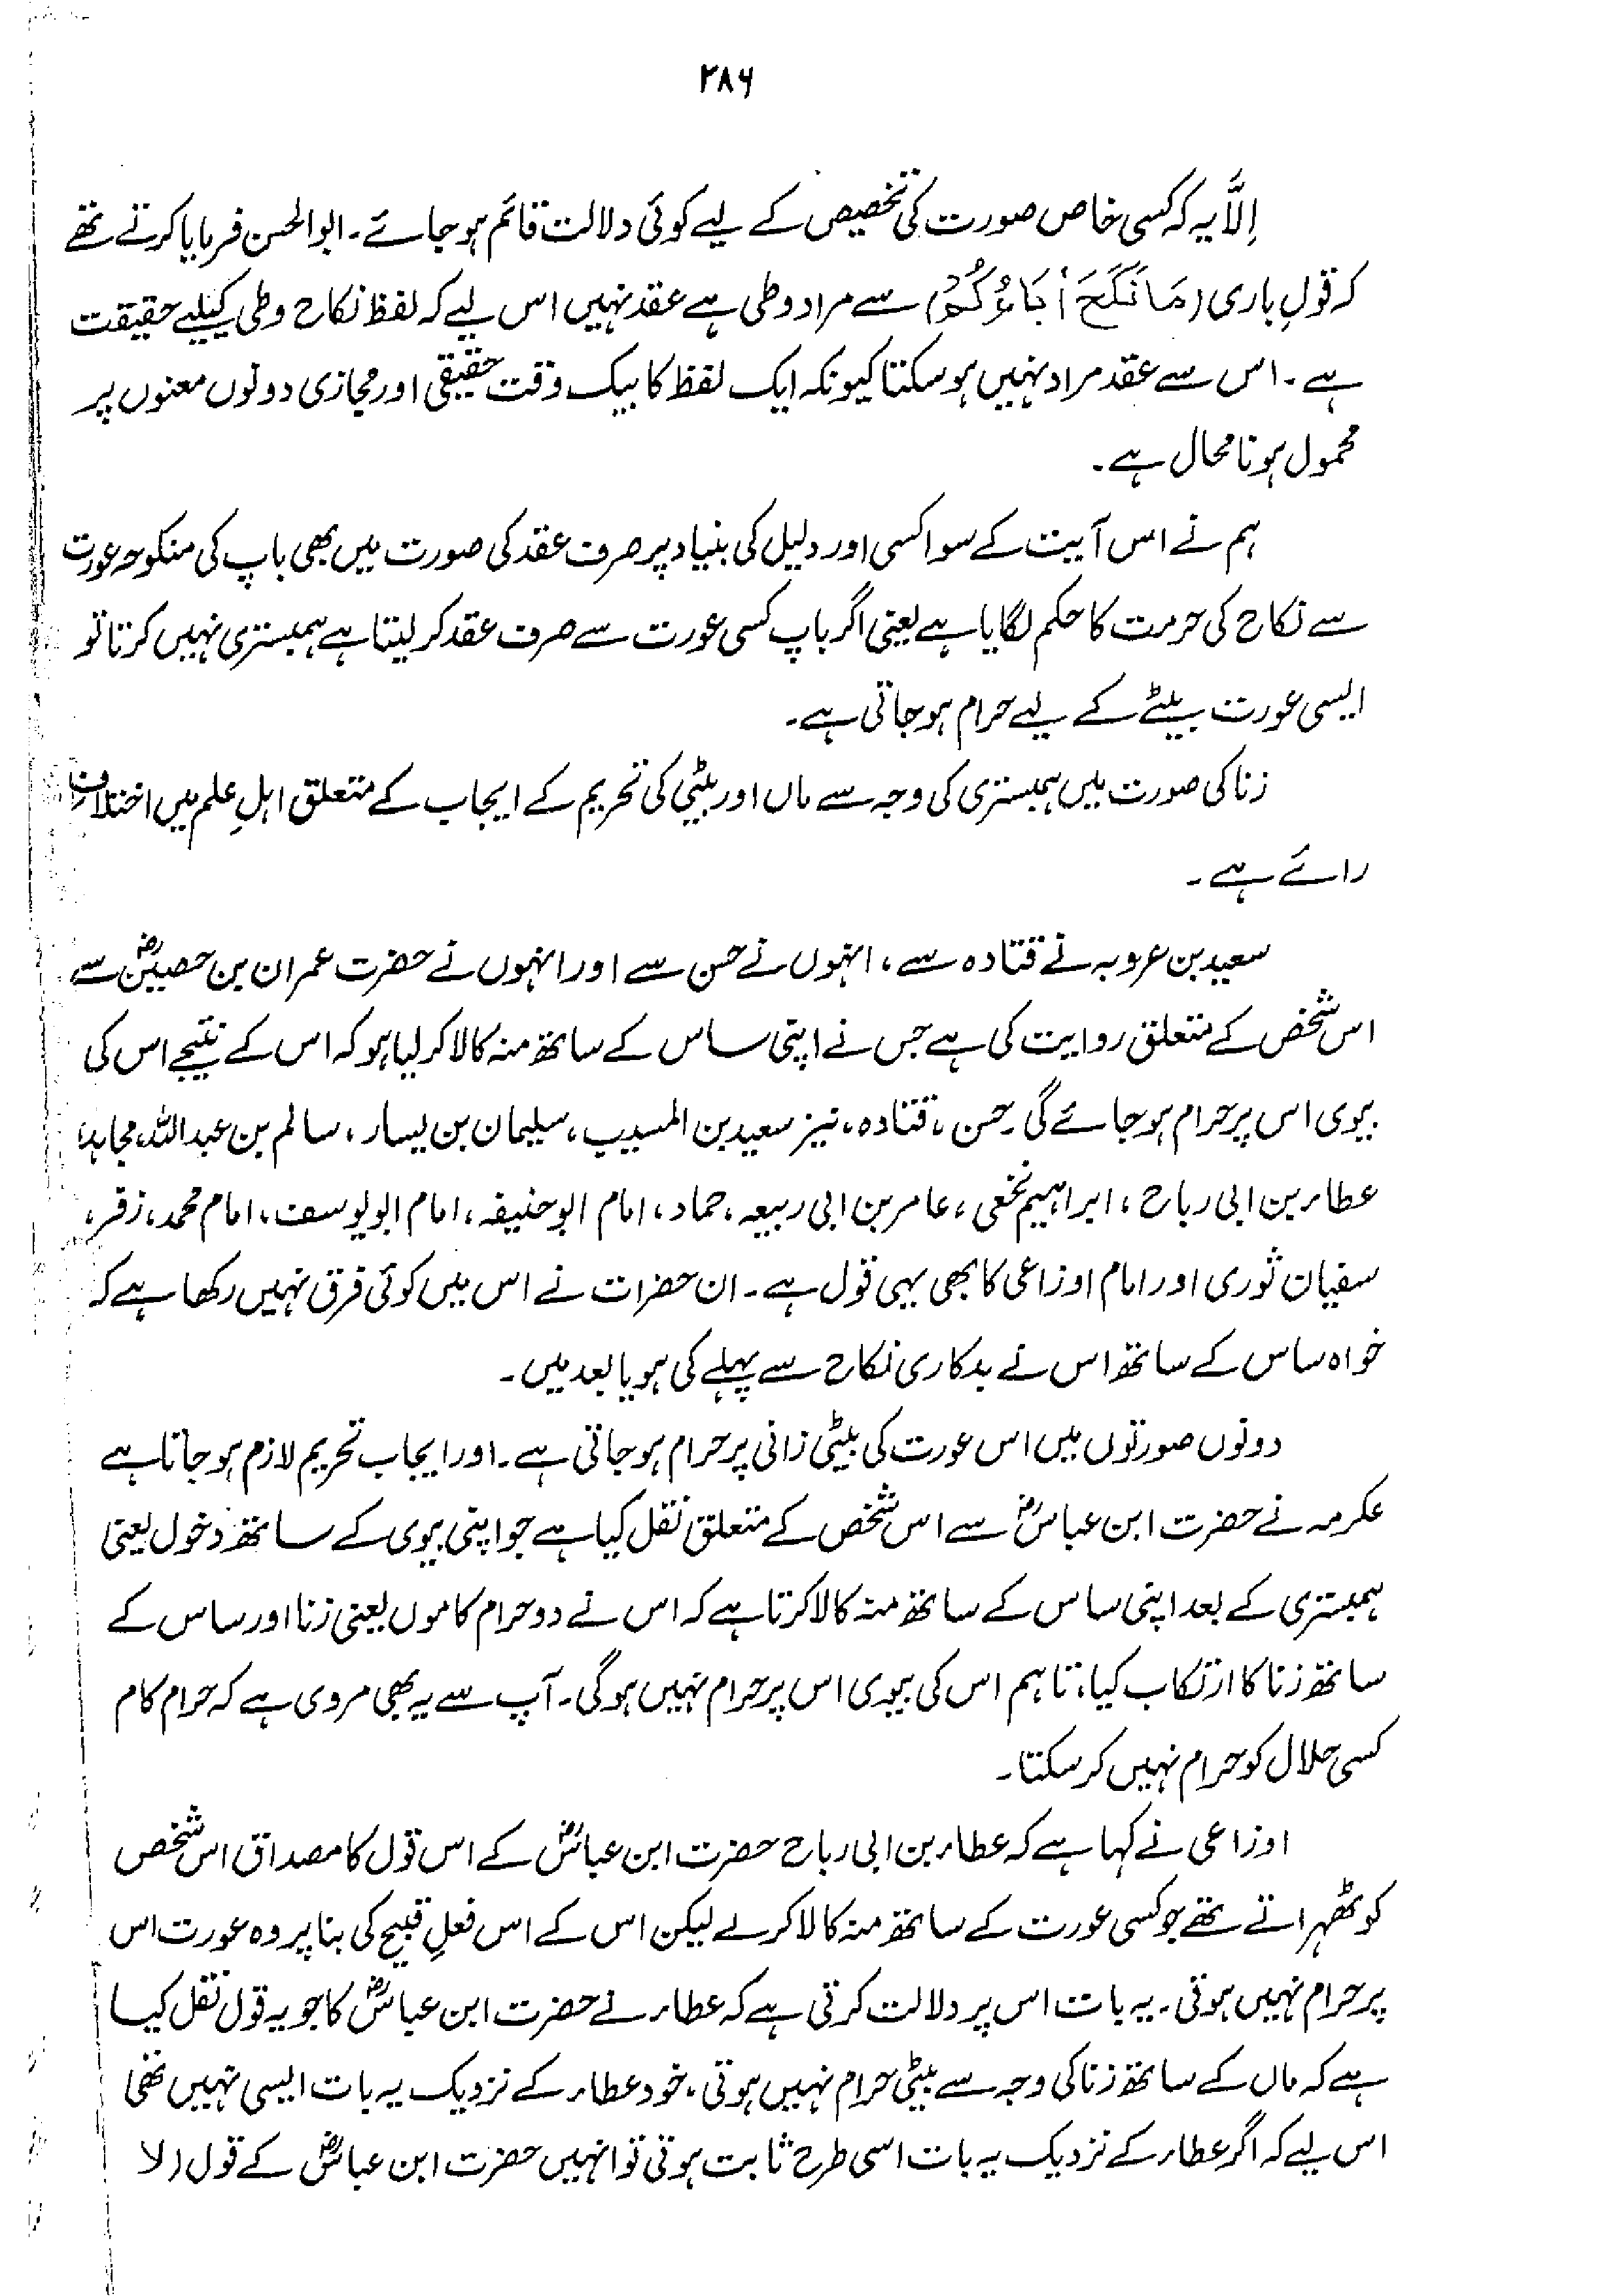 ۲۸۶
اِلَّا یہ کہ کسی خاص صورت کی تخصیص کے لیے کوئی دلالت قائم ہو جائے۔ ابوالحسن فرمایا کرتے تھے
کہ قولِ باری (مَا نَكَحَ اٰبَاؤُكُمْ) سے مراد وطی ہے عقد نہیں اس لیے کہ لفظ نکاح وطی کیلیے حقیقت
ہے۔ اس سے عقد مراد نہیں ہو سکتا کیونکہ ایک لفظ کا بیک وقت حقیقی اور مجازی دونوں معنوں پر
محمول ہونا محال ہے۔
ہم نے اس آیت کے سوا کسی اور دلیل کی بنیاد پر صرف عقد کی صورت میں بھی باپ کی منکوحہ عورت
سے نکاح کی حرمت کا حکم لگایا ہے یعنی اگر باپ کسی عورت سے صرف عقد کر لیتا ہے ہمبستری نہیں کرتا تو
ایسی عورت بیٹے کے لیے حرام ہو جاتی ہے۔
زنا کی صورت میں ہمبستری کی وجہ سے ماں اور بیٹی کی تحریم کے ایجاب کے متعلق اہلِ علم میں اختلافِ
رائے ہے۔
سعید بن عروبہ نے قتادہ سے، انہوں نے حسن سے اور انہوں نے حضرت عمران بن حصینؓ سے
اس شخص کے متعلق روایت کی ہے جس نے اپنی ساس کے ساتھ منہ کالا کر لیا ہو کہ اس کے نتیجے اس کی
بیوی اس پر حرام ہو جائے گی۔ حسن، قتادہ، نیز سعید بن المسیب، سلیمان بن یسار، سالم بن عبداللہ، مجاہد،
عطاء بن ابی رباح، ابراہیم نخعی، عامر بن ابی ربیعہ، حماد، امام ابوحنیفہ، امام ابویوسف، امام محمد، زفر،
سفیان ثوری اور امام اوزاعی کا بھی یہی قول ہے۔ ان حضرات نے اس میں کوئی فرق نہیں رکھا ہے کہ
خواہ ساس کے ساتھ اس نے بدکاری نکاح سے پہلے کی ہو یا بعد میں۔
دونوں صورتوں میں اس عورت کی بیٹی زانی پر حرام ہو جاتی ہے۔ اور ایجاب تحریم لازم ہو جاتا ہے
عکرمہ نے حضرت ابن عباسؓ سے اس شخص کے متعلق نقل کیا ہے جو اپنی بیوی کے ساتھ دخول یعنی
ہمبستری کے بعد اپنی ساس کے ساتھ منہ کالا کرتا ہے کہ اس نے دو حرام کاموں یعنی زنا اور ساس کے
ساتھ زنا کا ارتکاب کیا، تاہم اس کی بیوی اس پر حرام نہیں ہوگی۔ آپ سے یہ بھی مروی ہے کہ حرام کام
کسی حلال کو حرام نہیں کر سکتا۔
اوزاعی نے کہا ہے کہ عطاء بن ابی رباح حضرت ابن عباسؓ کے اس قول کا مصداق اس شخص
کو ٹھہراتے تھے جو کسی عورت کے ساتھ منہ کالا کرلے لیکن اس کے اس فعلِ قبیح کی بنا پر وہ عورت اس
پر حرام نہیں ہوتی۔ یہ بات اس پر دلالت کرتی ہے کہ عطاء نے حضرت ابن عباسؓ کا جو یہ قول نقل کیا
ہے کہ ماں کے ساتھ زنا کی وجہ سے بیٹی حرام نہیں ہوتی، خود عطاء کے نزدیک یہ بات ایسی نہیں تھی
اس لیے کہ اگر عطاء کے نزدیک یہ بات اسی طرح ثابت ہوتی تو انہیں حضرت ابن عباسؓ کے قول (لا